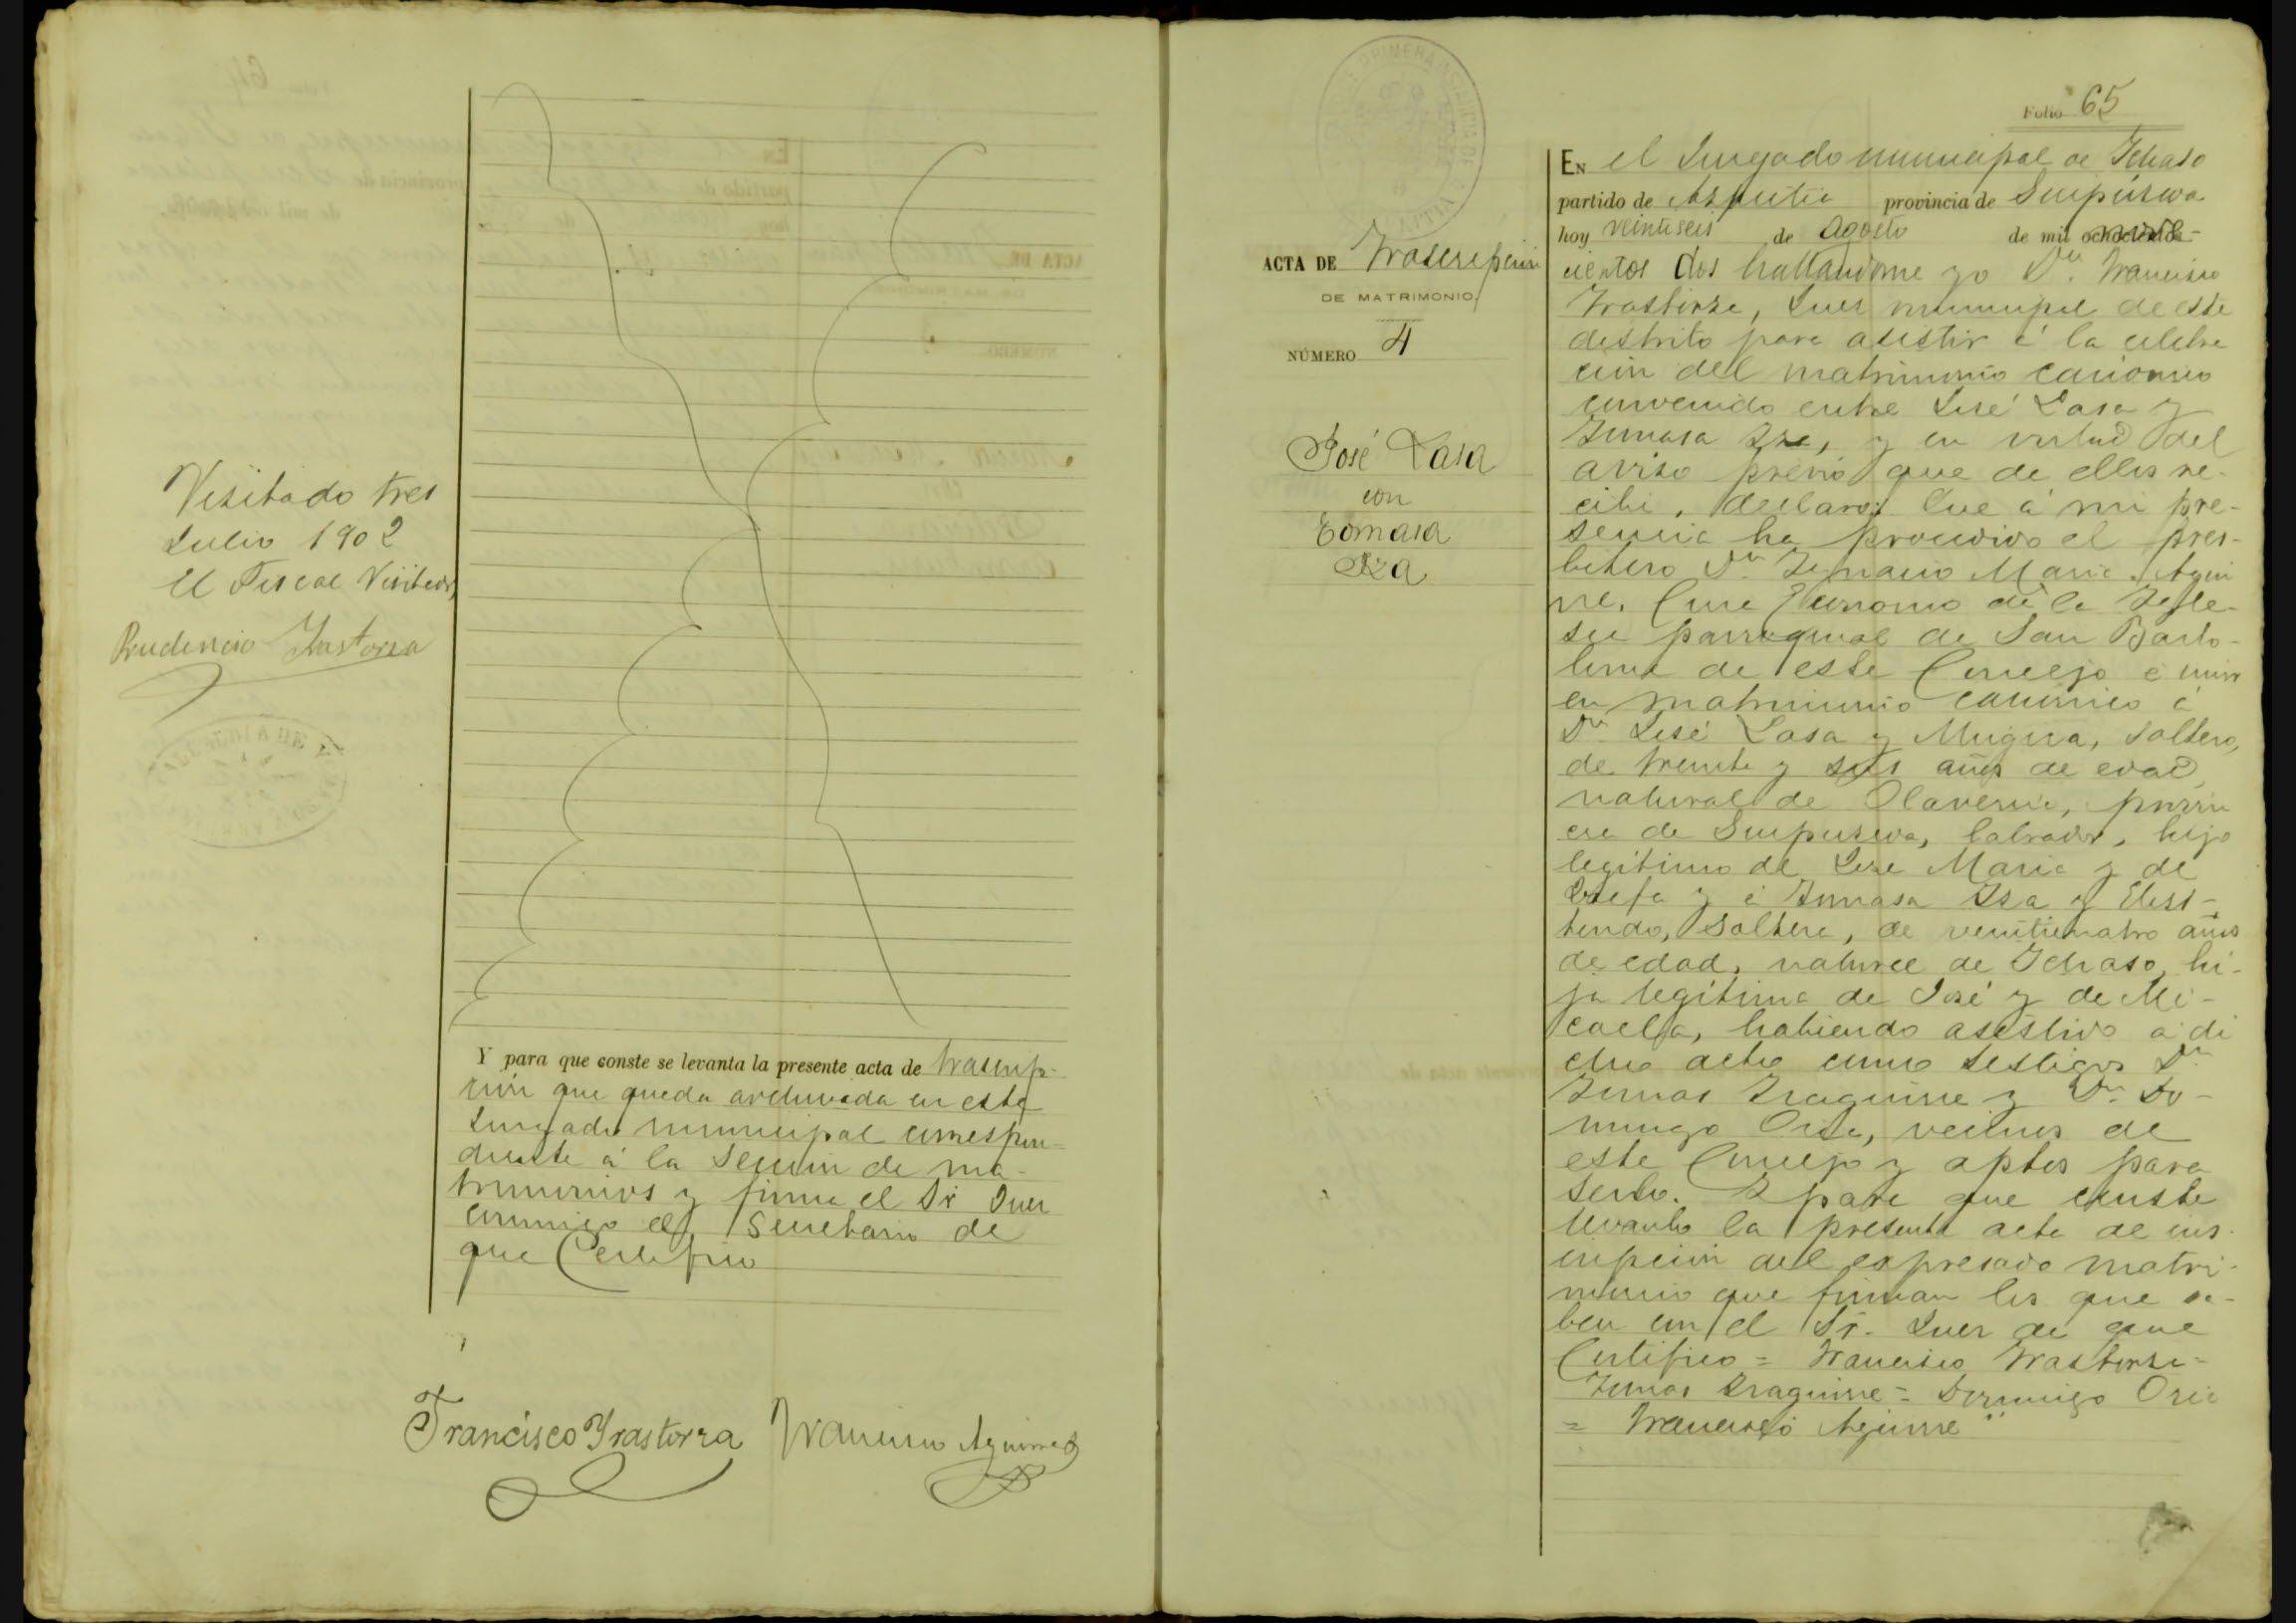 Visitado tres
Julio 1902
El Fiscal Visitador,
Prudencio Yrastorza
Y para que conste se levanta la presente acta de trascrip-
ción que queda archivada en este
Juzgado municipal correspon-
diente á la Sección de ma-
trimonios y firma el Sr Juez
conmigo el Secretario de
que Certifico
Francisco Yrastorza Francisco Aguirre
Folio 65
ACTA DE Trascripcion
DE MATRIMONIO.
NÚMERO 4
José Lasa
con
Tomasa
Iza
EN el Juzgado municipal de Ichaso
partido de Azpeitia provincia de Guipúzcoa
hoy veintiseis de Agosto de mil nove-
cientos dos hallandome yo Dn. Francisco
Yrastorza, Juez municipal de este
distrito para asistir á la celebra
ción del matrimonio canónico
convenido entre José Lasa y
Tomasa Iza, y en virtud del
aviso previo que de ellos re-
cibi, declaro: Que á mi pre-
sencia ha procedido el pres-
bitero Dn. Ignacio Maria Aguir
rre, Cura Ecónomo de la Igle-
sia parroquial de San Barto-
lomé de este Concejo á unir
en matrimonio canónico á
Dn. José Lasa y Mugica, soltero,
de treinta y seis años de edad,
natural de Olaverria, provin
cia de Guipuzcoa, labrador, hijo
legitimo de José Maria y de
Josefa y á Tomasa Iza y Elust-
tondo, soltera, de veinticuatro años
de edad, natural de Ichaso, hi-
ja legítima de José y de Mi-
caela, habiendo asistido á di
cho acto como testigos Dn
Tomas Izaguirre y Dn. Do-
mingo Oria, vecinos de
este Concejo y aptos para
serlo. Y para que conste
levanto la presente acta de ins-
cripción del expresado matri-
monio que firman los que sa-
ben con el Sr. Juez de que
Certifico = Francisco Yrastorza =
Tomas Izaguirre = Domingo Oria
= Francisco Aguirre"